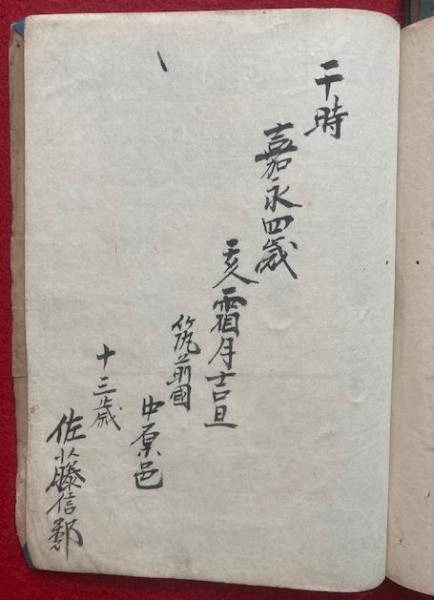 于時
嘉永四歳
亥霜月吉旦
筑前國
中原邑
十三歳
佐藤信郷